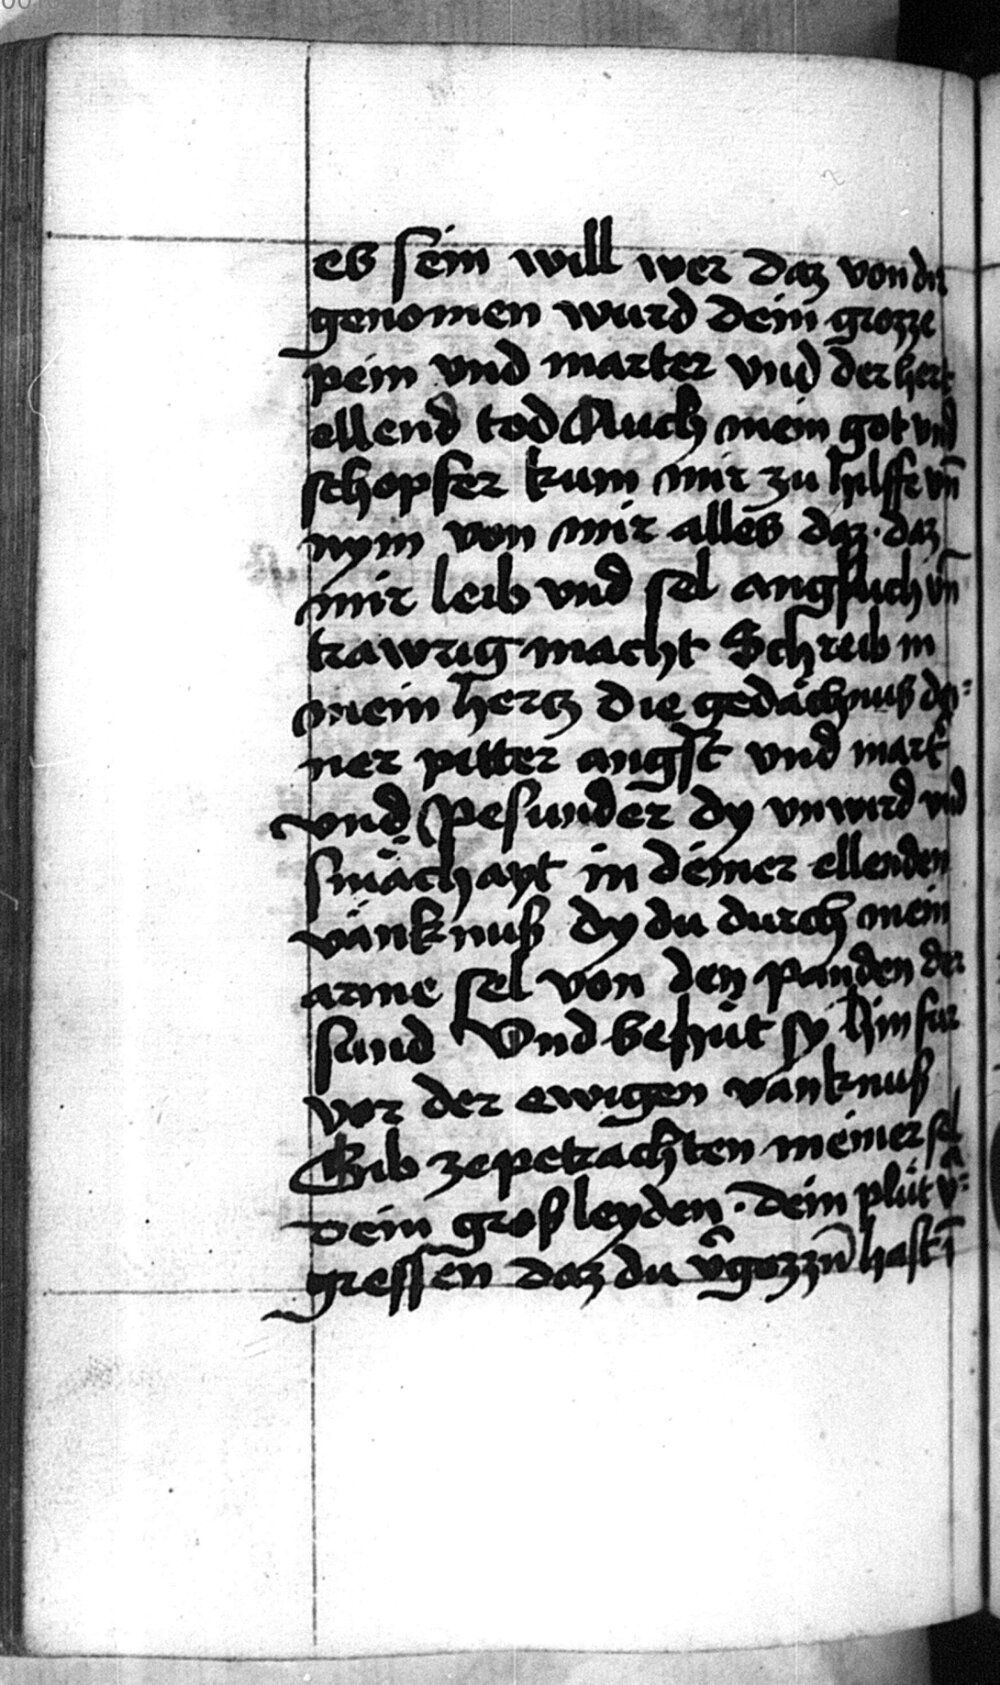 es sein will wer daz von dir
genomen wurd dein grozze
pein vnd marter vnd der hert
ellend tod Auch mein got vnd
schopfer kum mir zu hilffe vn̄
nym von mir alles daz · daz
mir leib vnd sel angstlich vn̄
trawrig macht Schreib in
mein hertz die gedächnuß dei⸗
ner pitter angst vnd mart̄
vnd Pesunder dy vnwird vnd
smächayt in deiner ellenden
vänknuß dy du durch mein
arme sel von den panden der
sund Vnd behüt sy hinfur
vor der ewigen vanknuß
Gib ze petrachten meiner sel
dein groß leyden · dein plüt v̄⸗
gressen daz du v̄gozzn̄ hast ī